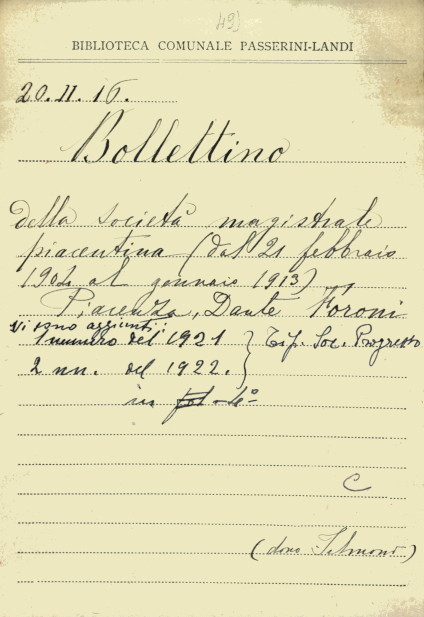 493
BIBLIOTECA COMUNALE PASSERINI-LANDI
20.II.16.
Bollettino
della società magistrale
piacentina (dal 21 febbraio
1902 al gennaio 1913)
Piacenza, Dante Foroni
Vi sono aggiunti:
1 numero del 1921 } Tip. Soc. Progresso
2 nn. del 1922.
in fol - 4°
C
(dono